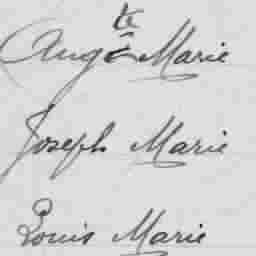 Augte Marie
Joseph Marie
Louis Marie